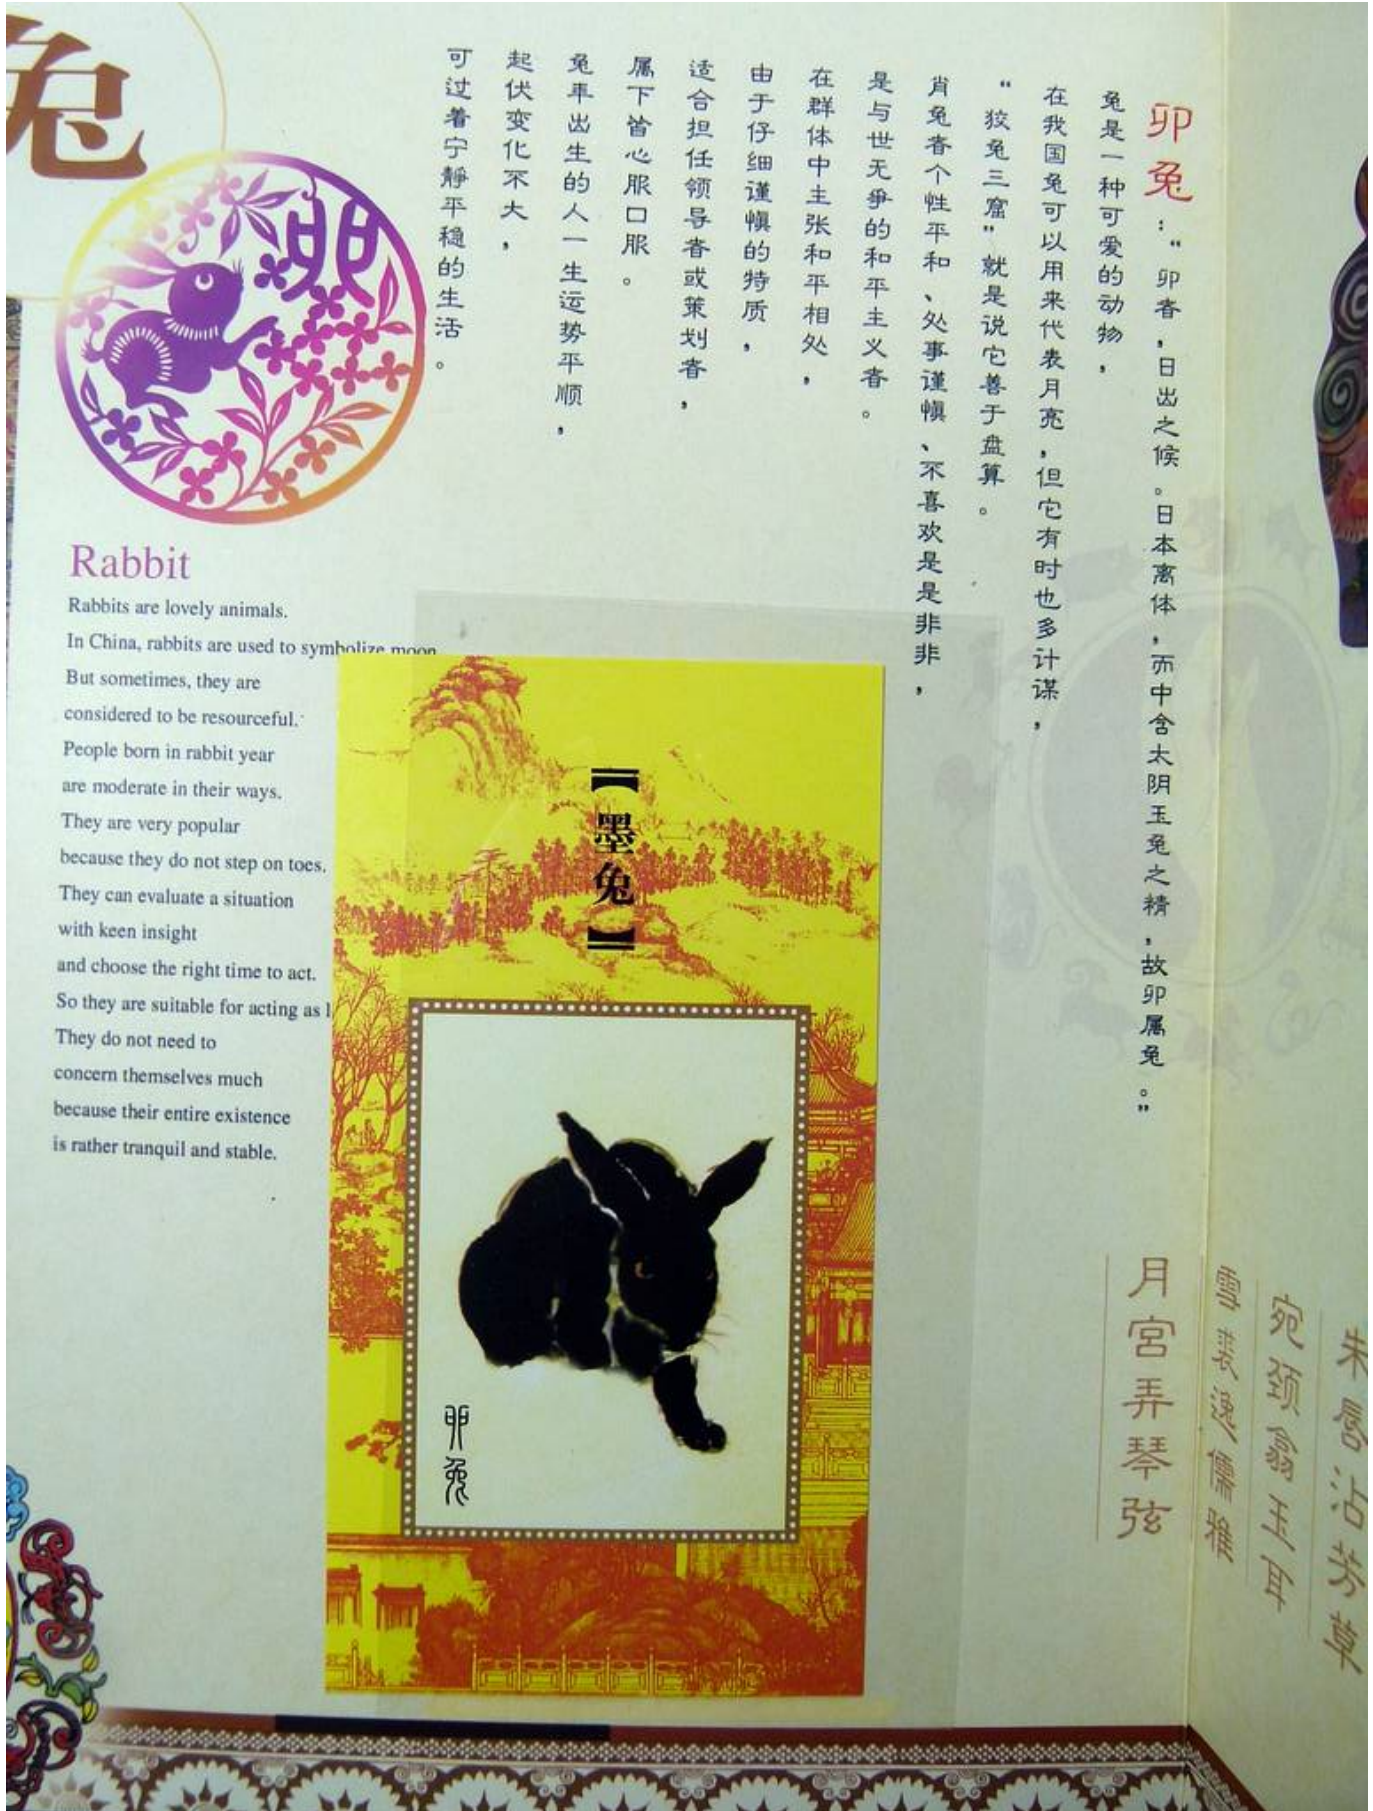 兔
卯
卯兔：“卯者，日出之候。日本离体，而中含太阴玉兔之精，故卯属兔。”
兔是一种可爱的动物，
在我国兔可以用来代表月亮，但它有时也多计谋，
“狡兔三窟”就是说它善于盘算。
肖兔者个性平和、处事谨慎、不喜欢是是非非，
是与世无争的和平主义者。
在群体中主张和平相处，
由于仔细谨慎的特质，
适合担任领导者或策划者，
属下皆心服口服。
兔年出生的人一生运势平顺，
起伏变化不大，
可过着宁静平稳的生活。
Rabbit
Rabbits are lovely animals.
In China, rabbits are used to symbolize moon
But sometimes, they are
considered to be resourceful.
People born in rabbit year
are moderate in their ways.
They are very popular
because they do not step on toes.
They can evaluate a situation
with keen insight
and choose the right time to act.
So they are suitable for acting as
They do not need to
concern themselves much
because their entire existence
is rather tranquil and stable.
【墨兔】
卯兔
朱唇沾芳草
宛颈翕玉耳
雪裘逸儒雅
月宫弄琴弦